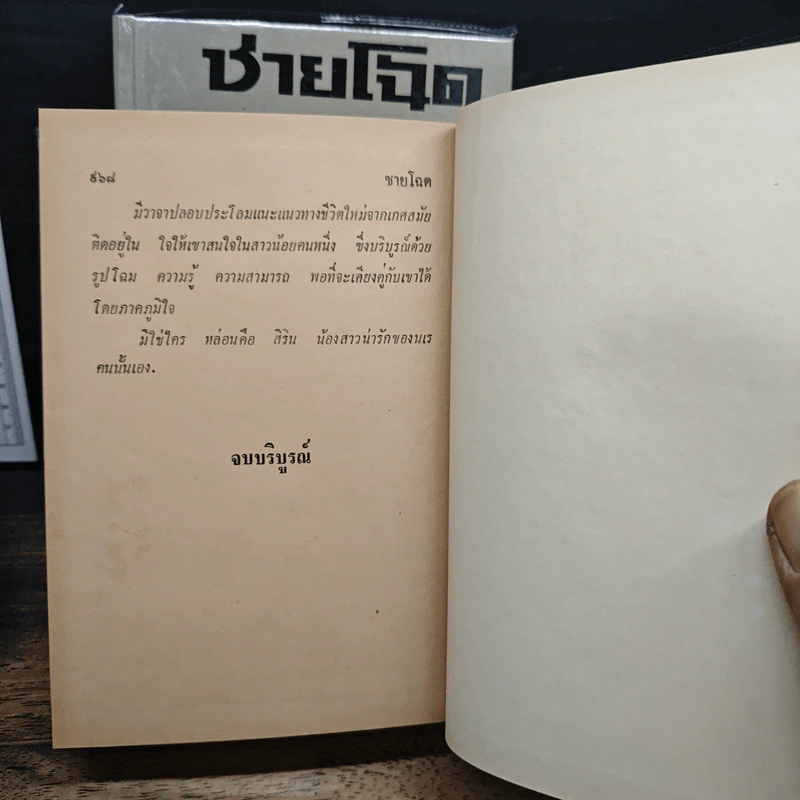 ชายโฉด
๙๖๘ ชายโฉด
มีวาจาปลอบประโลมแนะแนวทางชีวิตใหม่จากเกศสมัย
ติดอยู่ใน ใจให้เขาสนใจในสาวน้อยคนหนึ่ง ซึ่งบริบูรณ์ด้วย
รูปโฉม ความรู้ ความสามารถ พอที่จะเคียงคู่กับเขาได้
โดยภาคภูมิใจ
มิใช่ใคร หล่อนคือ สิริน น้องสาวน่ารักของนเร
คนนั้นเอง.
จบบริบูรณ์